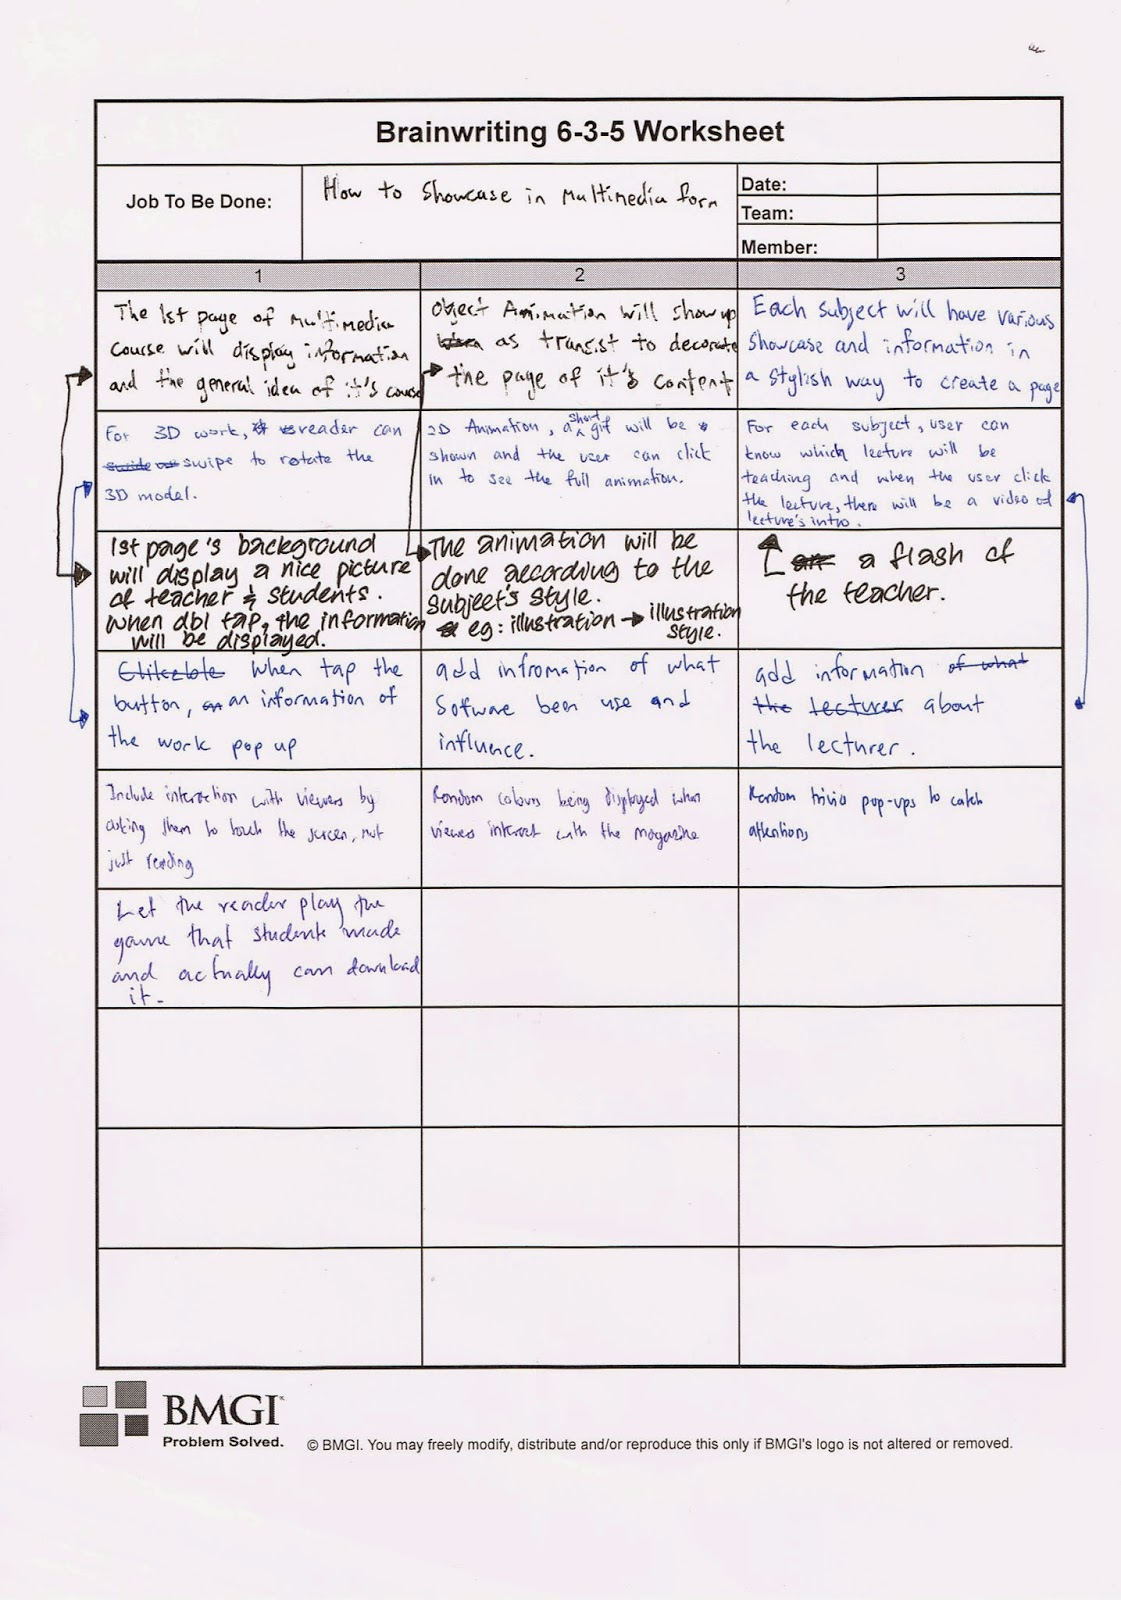 Brainwriting 6-3-5 Worksheet
Job To Be Done:
How to Showcase in Multimedia form
Date:
Team:
Member:
1
2
3
The 1st page of Multimedia
course will display information
and the general idea of it's course
Object Animation will show up
as transist to decorate
the page of it's content
Each subject will have various
showcase and information in
a stylish way to create a page
For 3D work, reader can
swipe to rotate the
3D model.
2D Animation, a short gif will be
shown and the user can click
in to see the full animation.
For each subject, user can
know which lecture will be
teaching and when the user click
the lecture, there will be a video of
lecture's intro.
1st page's background
will display a nice picture
of teacher & students.
When dbl tap, the information
will be displayed.
The animation will be
done according to the
subject's style.
eg: illustration → illustration
style.
a flash of
the teacher.
Clikcable When tap the
button, an information of
the work pop up
add infromation of what
Sofware been use and
influence.
add information of what
the lecturer about
the lecturer.
Include interaction with viewers by
asking them to touch the screen, not
just reading
Random colours being displayed when
viewers interact with the magazine
Random trivia pop-ups to catch
attentions
Let the reader play the
game that students made
and actually can download
it.
BMGI
Problem Solved.
© BMGI. You may freely modify, distribute and/or reproduce this only if BMGI's logo is not altered or removed.